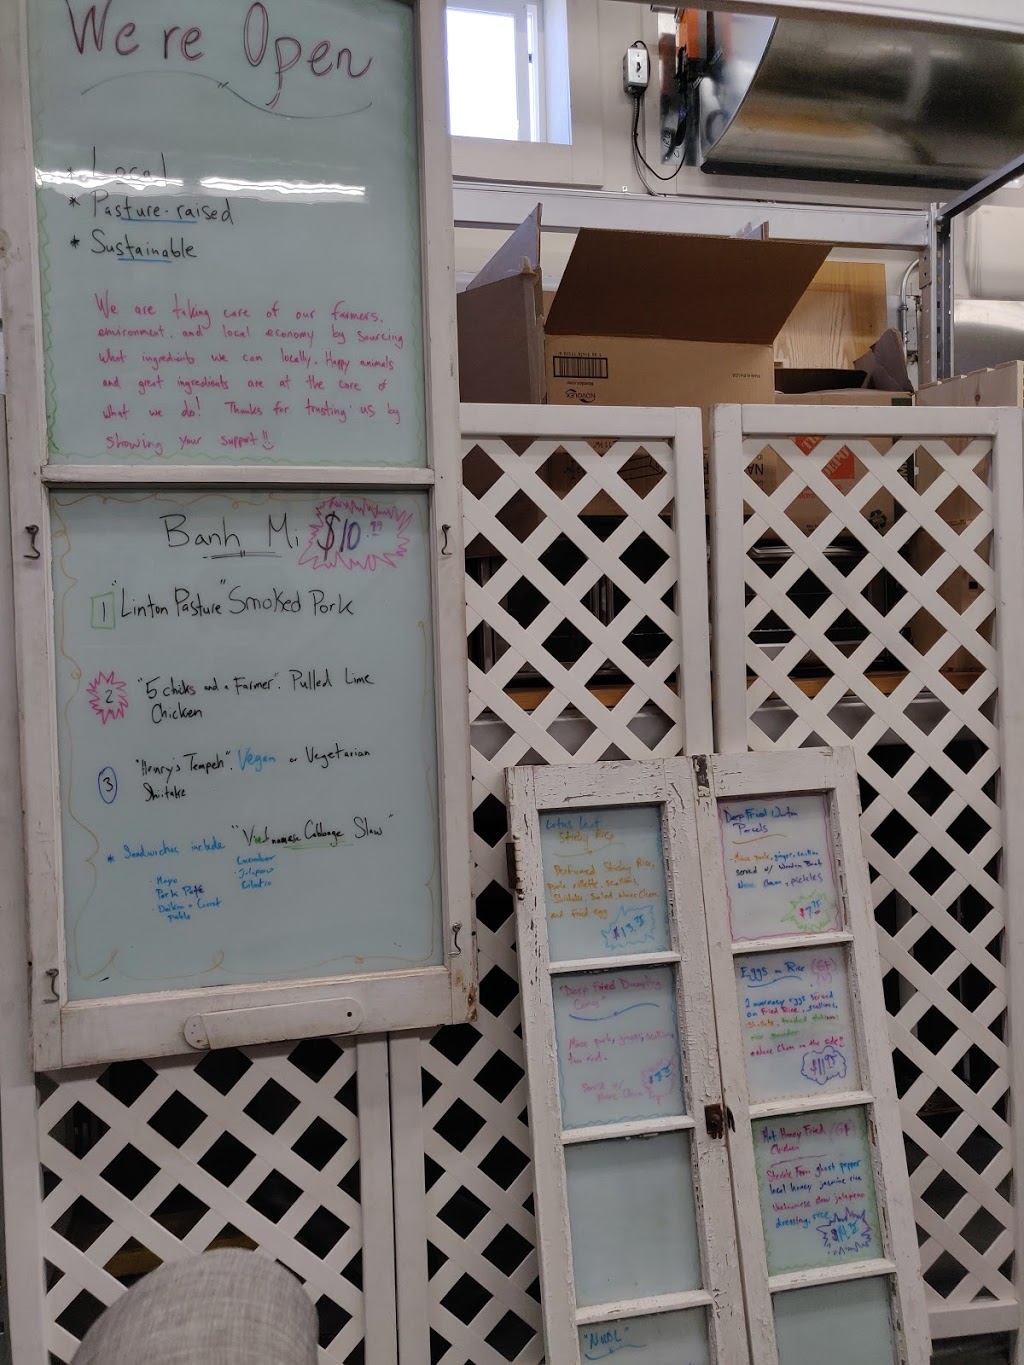 We're Open
* Local
* Pasture-raised
* Sustainable
We are taking care of our farmers,
environment, and local economy by sourcing
what ingredients we can locally. Happy animals
and great ingredients are at the core of
what we do! Thanks for trusting us by
showing your support!!
Banh Mi $10.99
1 "Linton Pasture" Smoked Pork
2 "5 chiks and a Farmer". Pulled Lime
Chicken
3 "Henry's Tempeh". Vegan or Vegetarian
Shiitake
* Sandwiches include "Vietnamese Cabbage Slaw"
Mayo
Pork Pate
Daikon + Carrot
pickle
Cucumber
Jalapeno
Cilantro
Lotus Leaf
Sticky Rice
Perfumed Sticky Rice,
pork rillette, scallions,
Shiitake,
and fried egg
$13.75
"Deep Fried Dumpling
pork, ginger, scallions
Served w/
Deep Fried Wonton
Parcels
pork, ginger, scallion
served w/
pickles
Eggs on Rice (GF)
2 eggs served
on Fried Rice, scallions,
Shiitake,
on the side!!
$11.95
Hot Honey Fried (GF)
Chicken
Farm ghost pepper
local honey jasmine rice
Vietnamese slaw jalapeno
dressing, rice
NOVOLEX